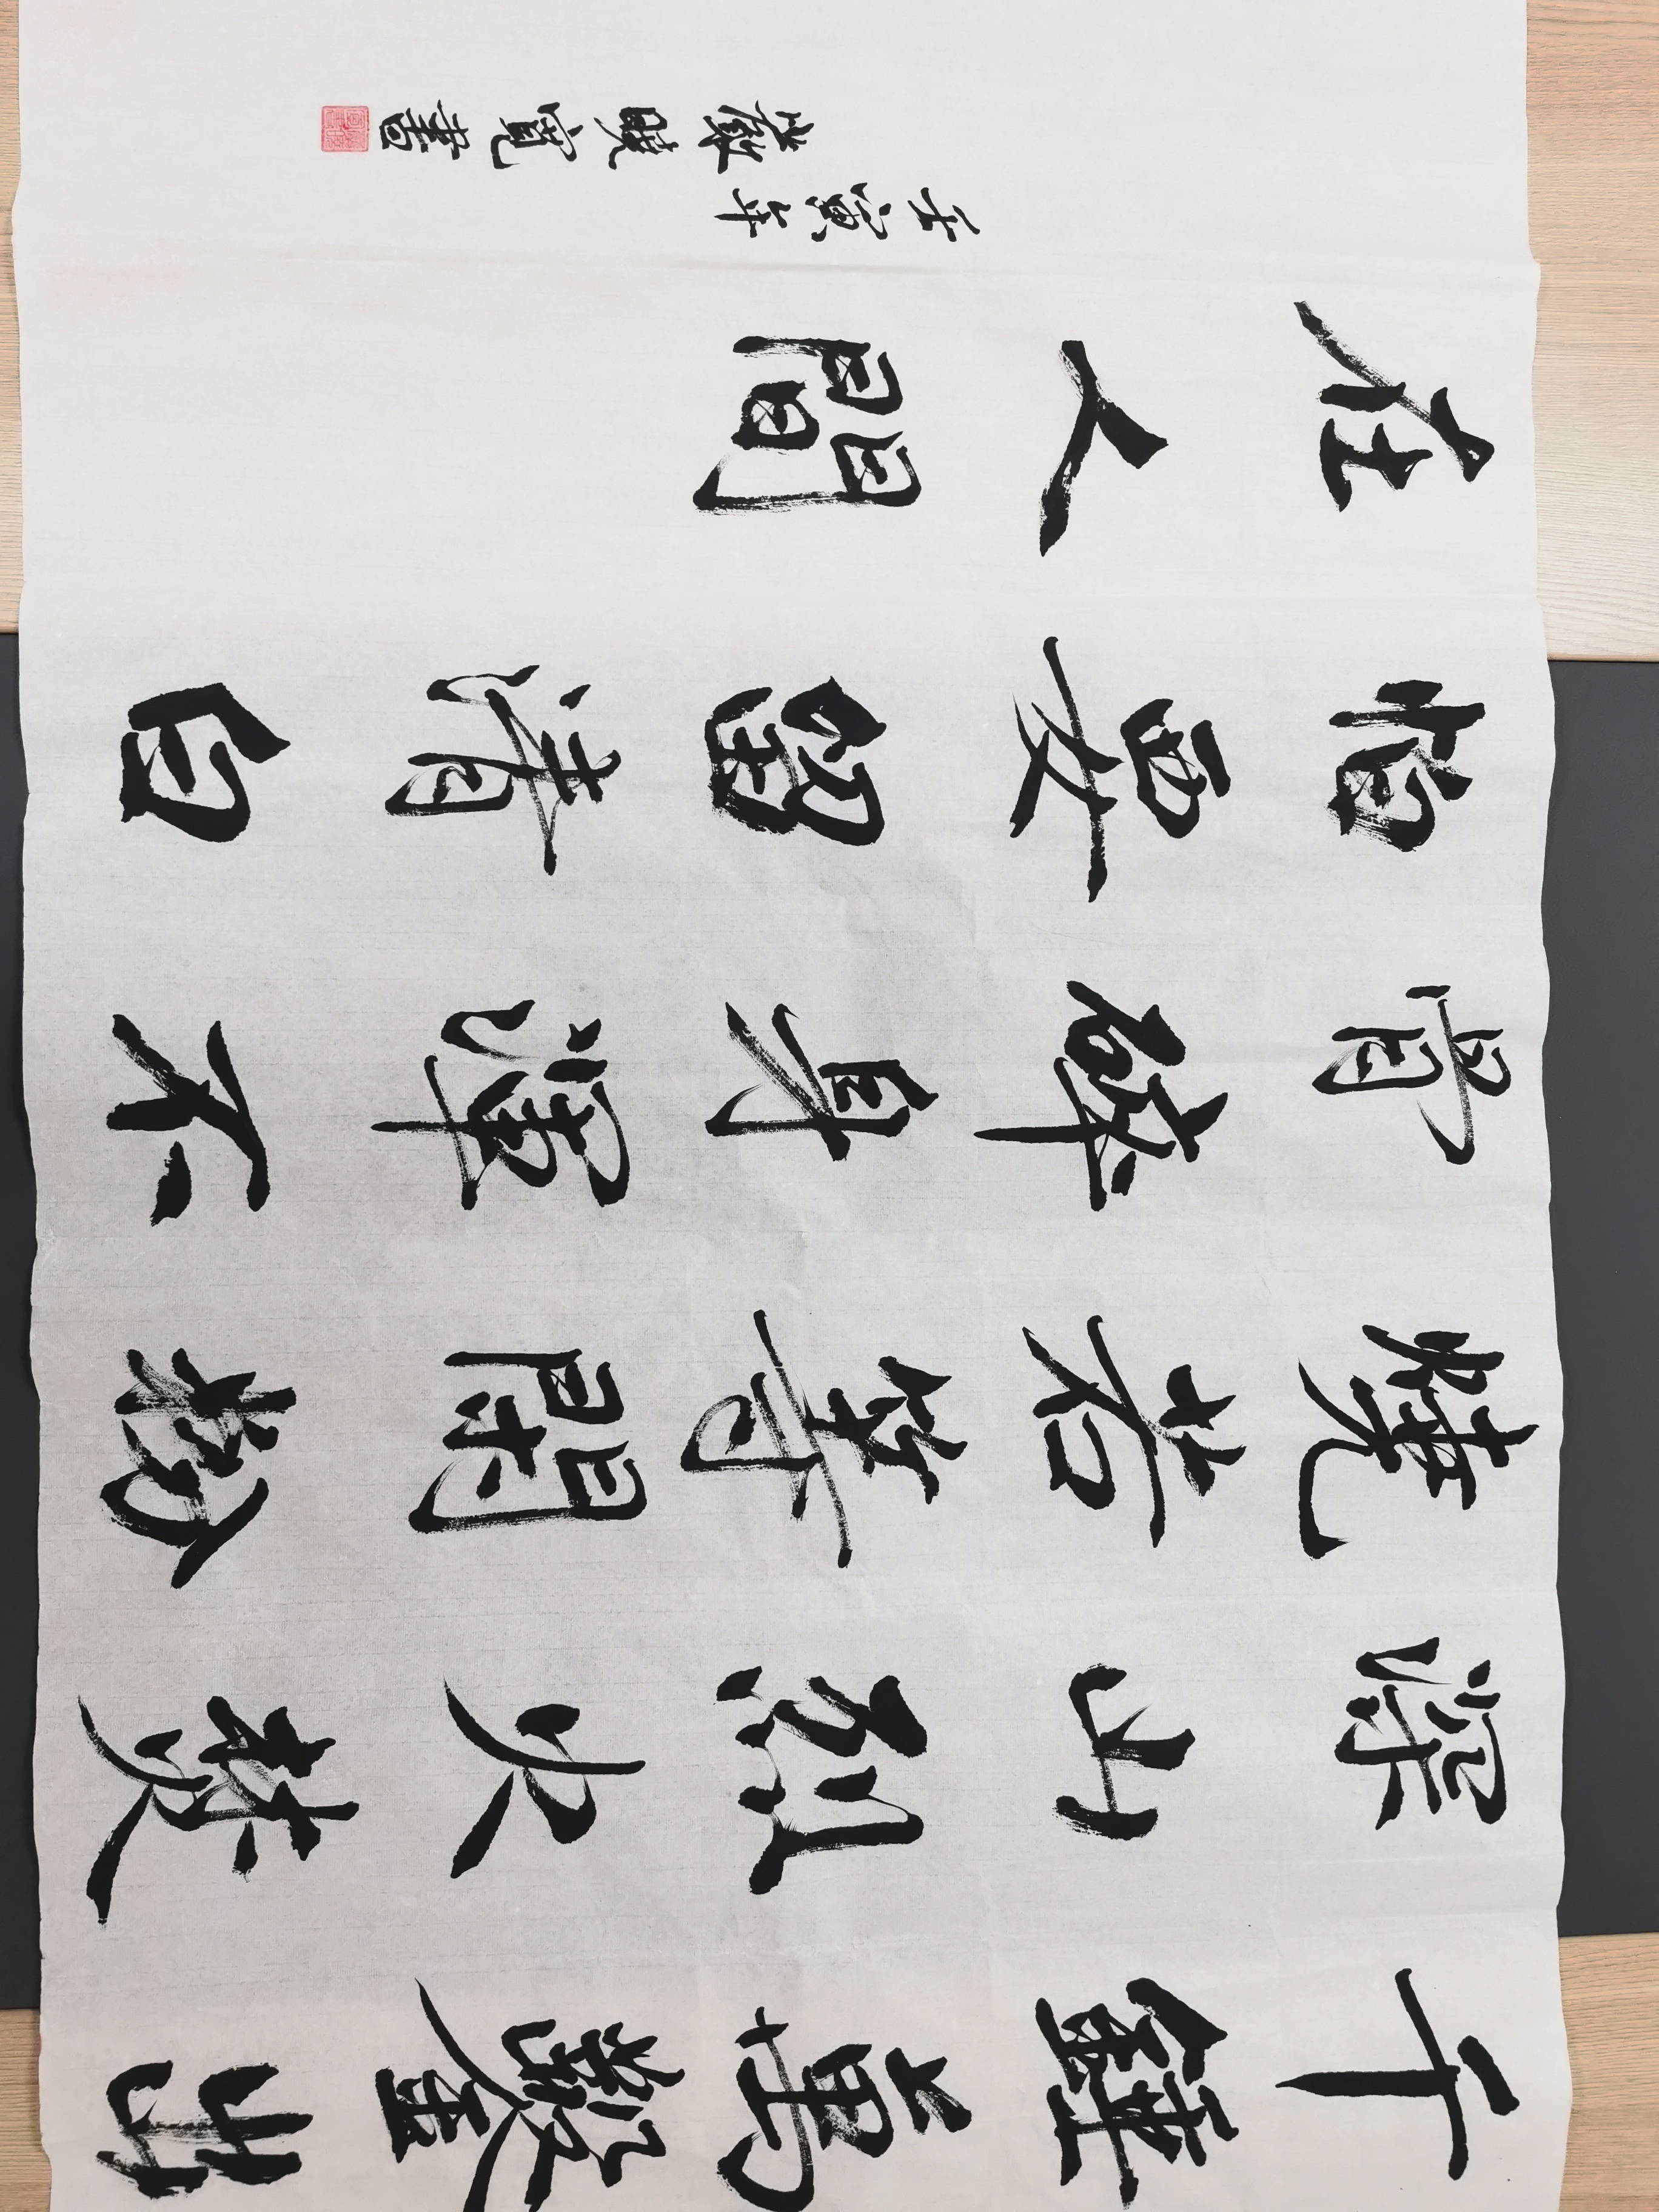 千錘萬鑿出
深山烈火焚
燒若等閑粉
骨碎身渾不
惜要留清白
在人間
壬寅年
嚴寬書